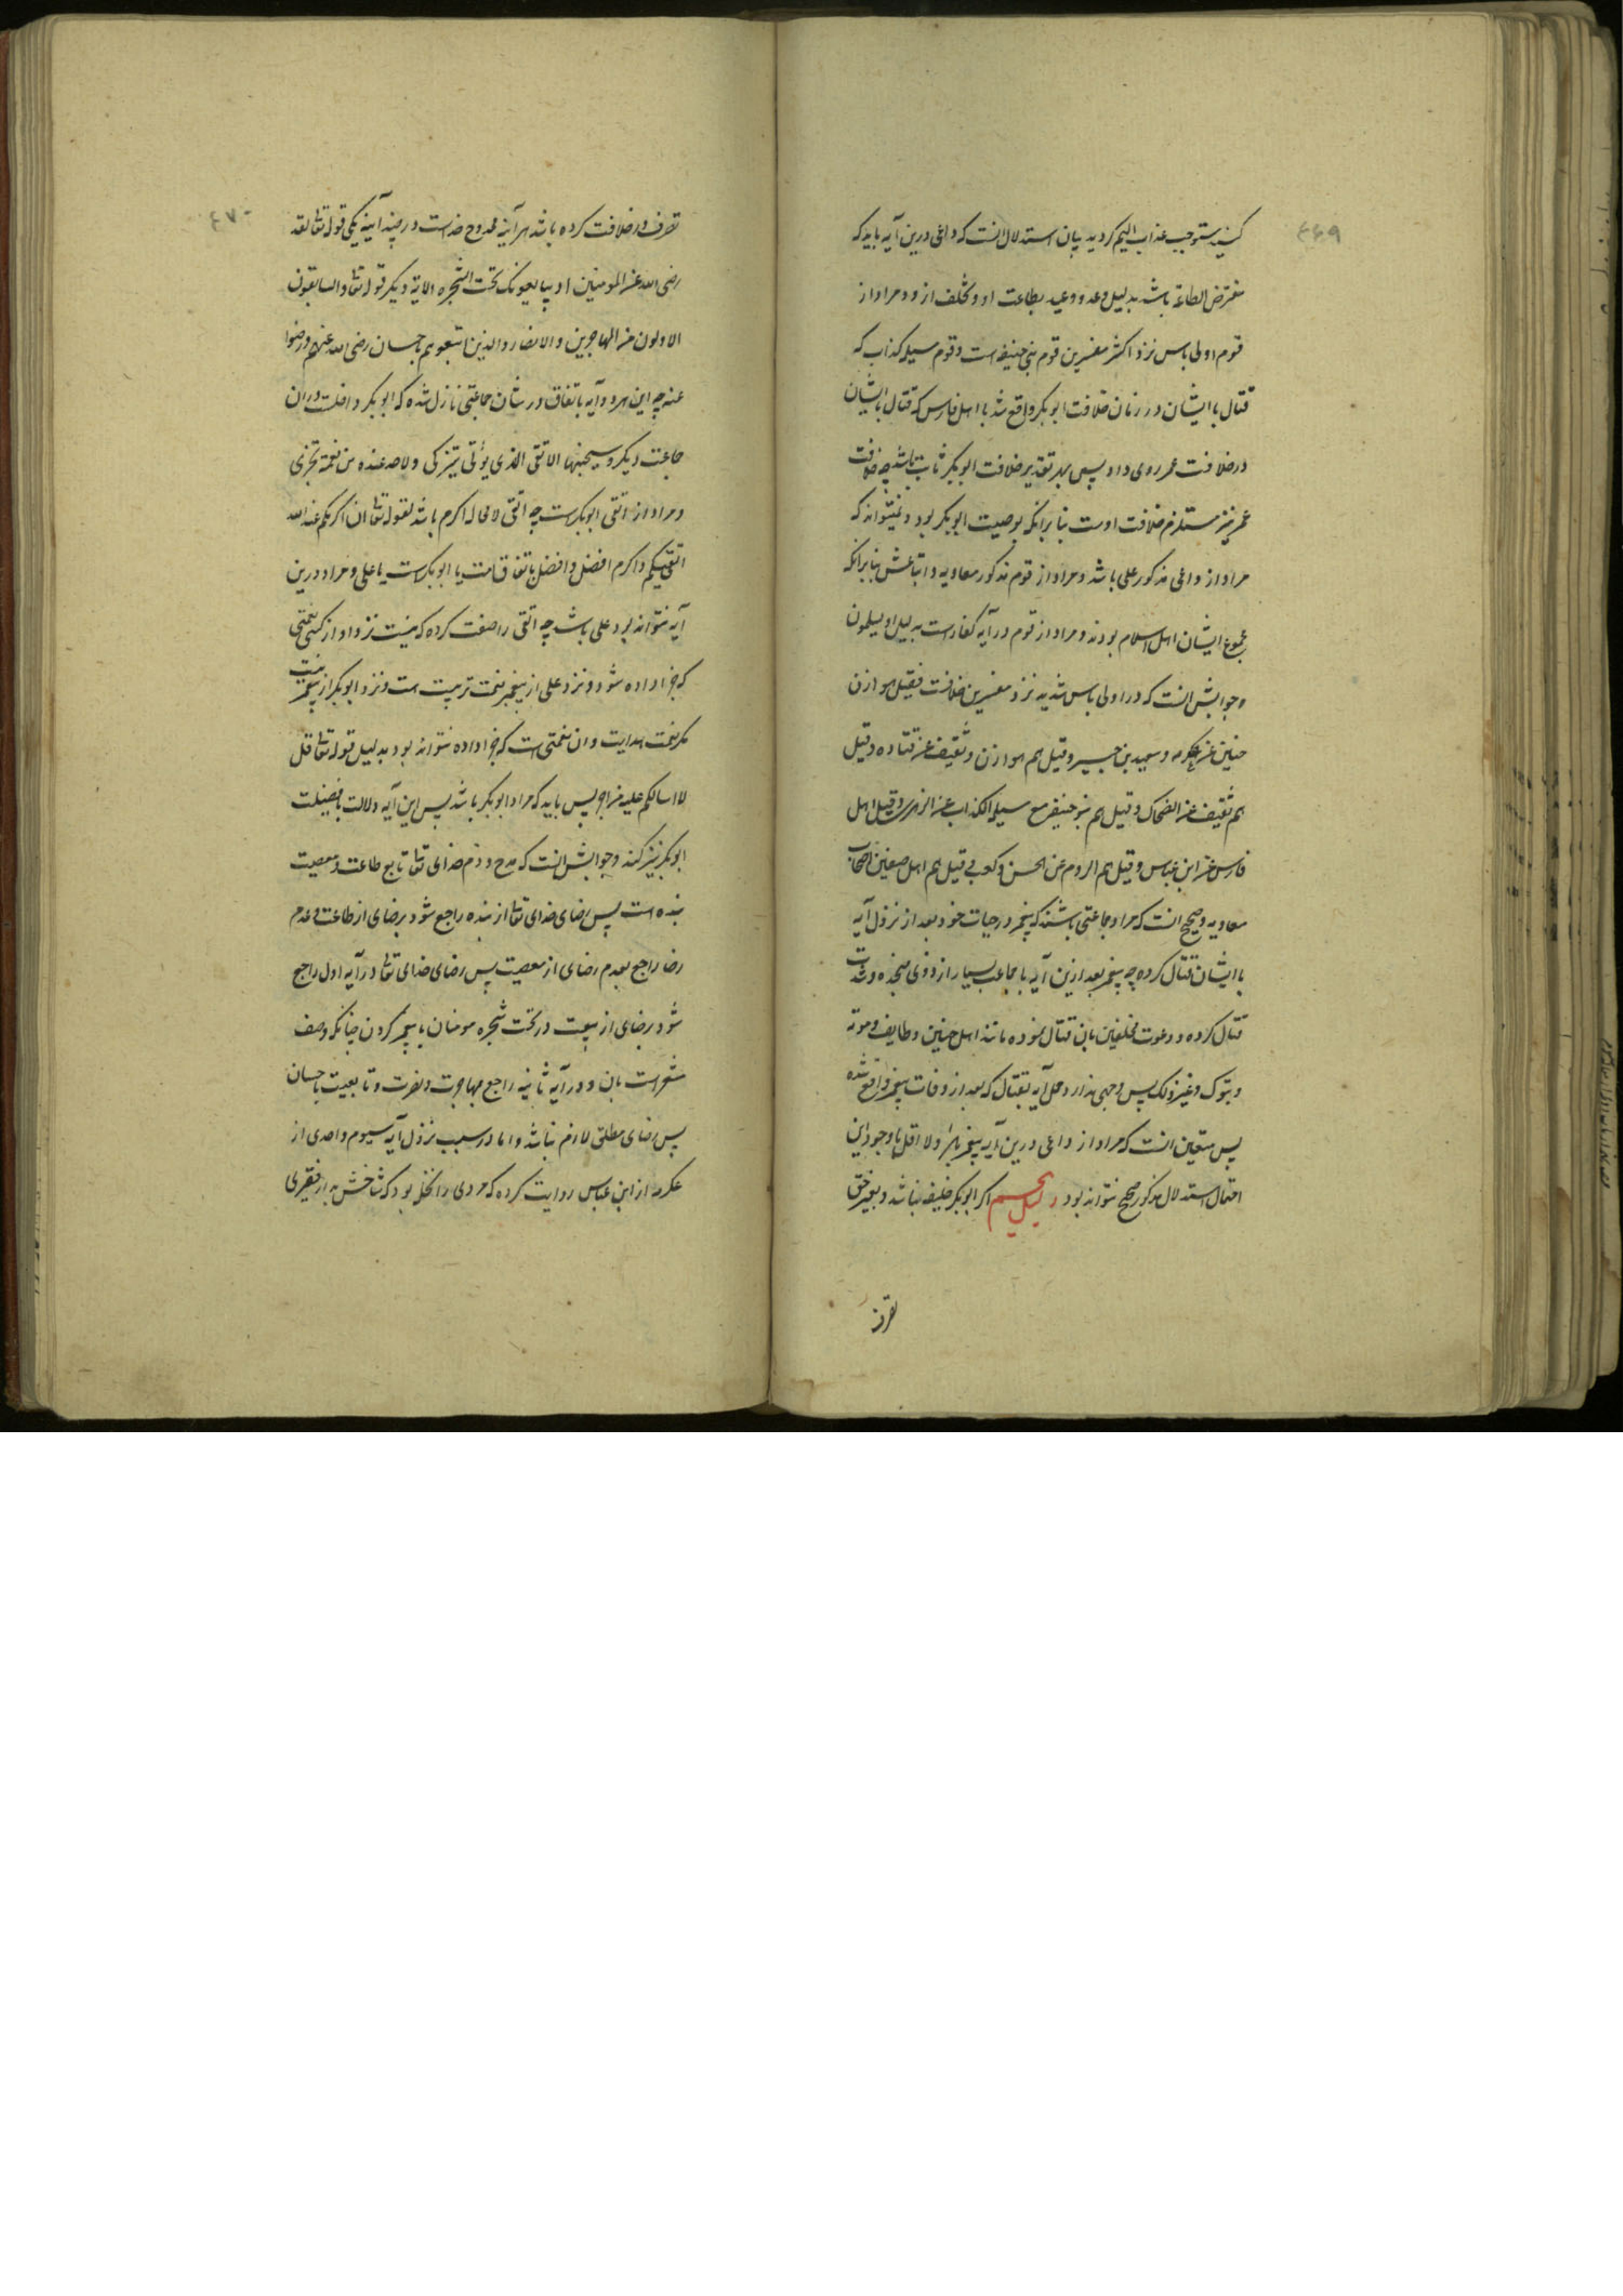 ۴۶۹
کنید مستوجب عذاب الیم کردید بیان استدلال انست که داعی درین آیه باید که
مفترض الطاعة باشد بدلیل وعد و وعید بطاعت او و تخلف ازو و مراد از
قوم اولی باس نزد اکثر مفسرین قوم بنی حنیفه است و قوم مسیلمه کذاب که
قتال با ایشان در زمان خلافت ابوبکر واقع شد یا اهل فارس که قتال با ایشان
در خلافت عمر روی داد پس بهر تقدیر خلافت ابوبکر ثابت باشد چه خلافت
عمر نیز مستلزم خلافت اوست بنا برانکه بوصیت ابوبکر بود و نمیتواند که
مراد از داعی مذکور علی باشد و مراد از قوم مذکور معاویه و اتباعش بنا برانکه
مجموع ایشان اهل اسلام بودند و مراد از قوم در آیه کفارست بدلیل او یسلمون
و جوابش انست که در اولی باس شدید نزد مفسرین خلافست فقیل هوازن
حنین عن عکرمه و سعید بن جبیر و قیل هم هوازن و ثقیف عن قتاده و قیل
هم ثقیف عن الضحاک و قیل هم بنو حنیفه مع مسیلمه الکذاب عن الزهری و قیل اهل
فارس عن ابن عباس و قیل هم الروم عن الحسن و کعب و قیل هم اهل صفین اصحاب
معاویه و صحیح انست که مراد جماعتی باشند که پیغمبر در حیات خود بعد از نزول آیه
با ایشان قتال کرده چه پیغمبر بعد ازین آیه با جماعت بسیار از ذوی نجده و شدت
قتال کرده و دعوت مخلفین بان قتال نموده مانند اهل حنین و طایف و موته
و تبوک و غیر ذلک پس وجهی ندارد حمل آیه بقتال که بعد از وفات پیغمبر واقع شده
پس متعین انست که مراد از داعی درین آیه پیغمبر باشد و لا اقل با وجود این
احتمال استدلال مذکور صحیح نتواند بود دلیل پنجم اکر ابوبکر خلیفه نباشد و بغیر حق
تصرف
۴۷۰
تصرف در خلافت کرده باشد هر آینه ممدوح خداست در چند آیه یکی قوله تعالی لقد
رضی الله عن المومنین اذ یبایعونک تحت الشجره الایه دیکر قوله تعالی و السابقون
الاولون من المهاجرین و الانصار و الذین اتبعوهم باحسان رضی الله عنهم و رضوا
عنه چه این هر دو آیه باتفاق در شان جماعتی نازل شده که ابوبکر داخلست دران
جماعت دیکر و سیجنبها الاتقی الذی یؤتی یتزکی و لاحد عنده من نعمة تجزی
و مراد از اتقی ابوبکرست چه اتقی لا محاله اکرم باشد لقوله تعالی ان اکرمکم عند الله
اتقیکم و اکرم افضل و افضل باتفاق امت یا ابوبکرست یا علی و مراد درین
آیه نتواند بود علی باشد چه اتقی را صفت کرده که نیست نزد او از کسی نعمتی
که جزا داده شود و نزد علی از پیغمبر نعمت تربیت هست و نزد ابوبکر از پیغمبر نیست
مکر نعمت هدایت و ان نعمتی است که جزا داده نتواند بود بدلیل قوله تعالی قل
لا اسالکم علیه من اجر پس باید که مراد ابوبکر باشد پس این آیه دلالت بافضلیت
ابوبکر نیز کند و جوابش انست که مدح و ذم خدای تعالی تابع طاعت و معصیت
بنده است پس رضای خدای تعالی از بنده راجع شود برضای از طاعت و عدم
رضا راجع بعدم رضای از معصیت پس رضای خدای تعالی در آیه اول راجع
شود برضای از بیعت در تحت شجره مومنان با پیغمبر کردن چنانکه وصف
مشعر است بان و در آیه ثانیه راجع بمهاجرت و نصرت و تابعیت باحسان
پس رضای مطلق لازم نباشد و اما در سبب نزول آیه سیوم واحدی از
عکرمه از ابن عباس روایت کرده که مردی را نخلی بود که شاخش بدار فقیری